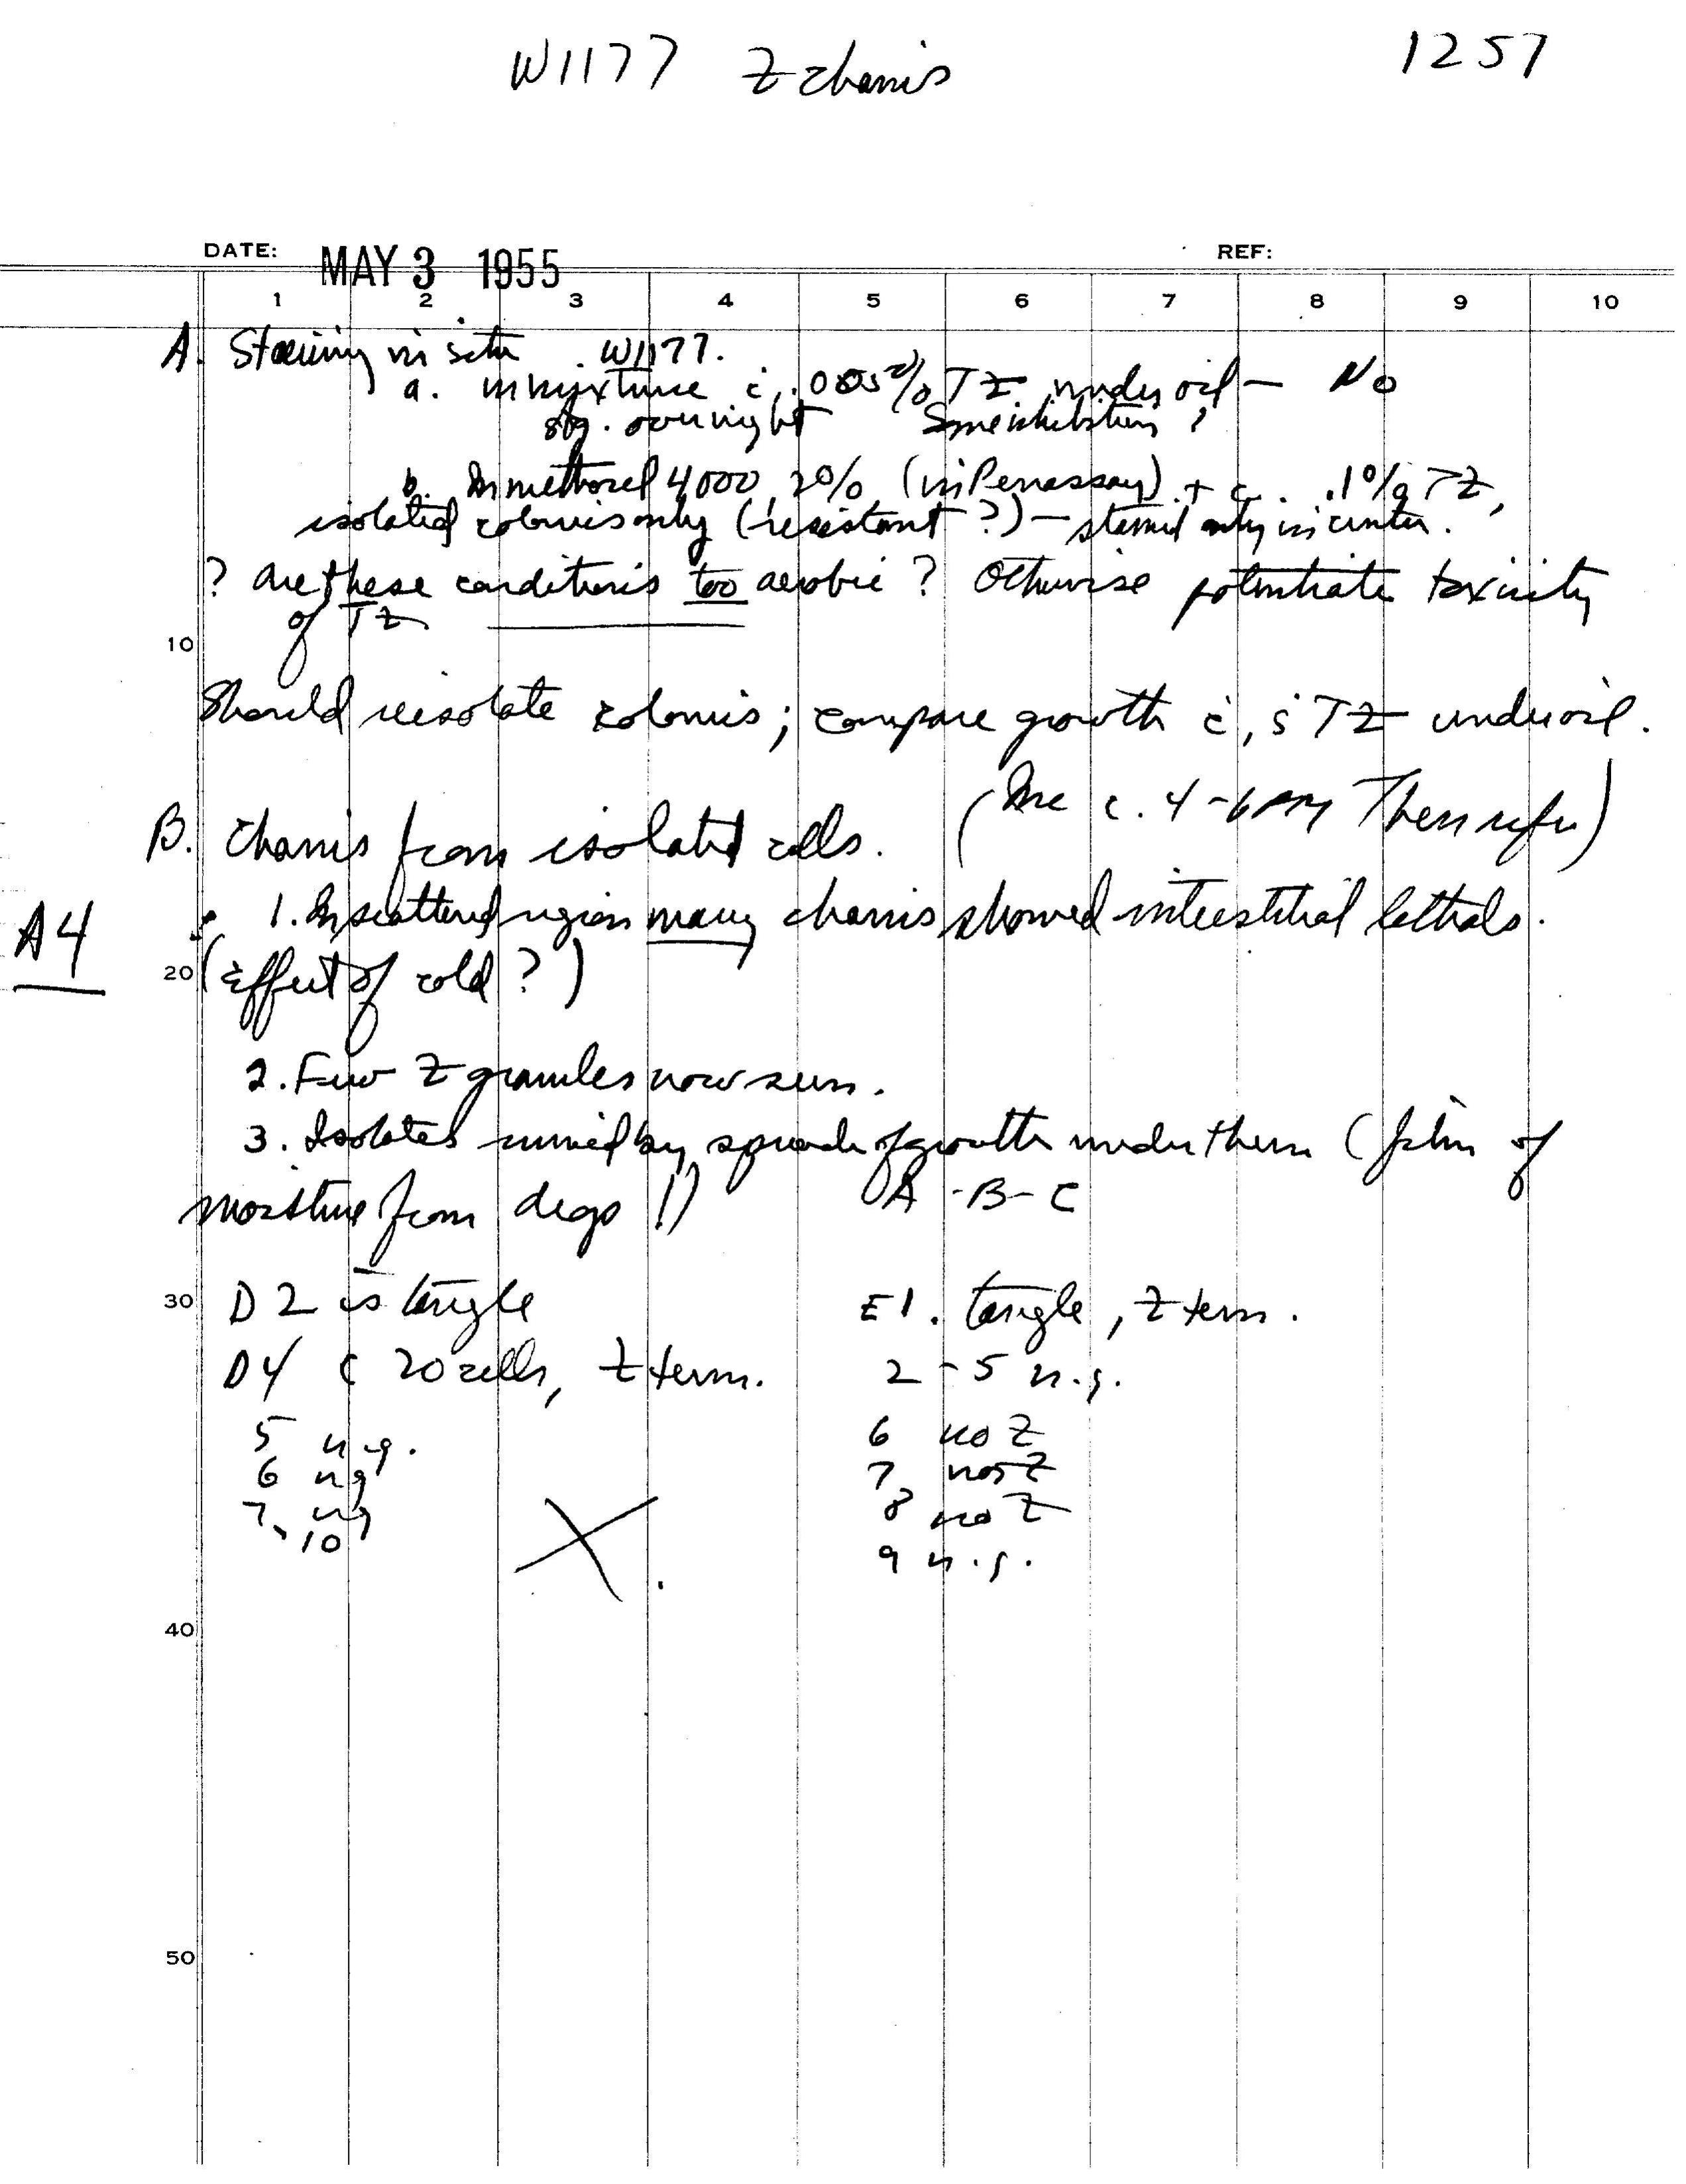 W1177 Z chains
1257
DATE: MAY 3 1955 REF:
1 2 3 4 5 6 7 8 9 10
A. Staining in situ. W1177.
a. in mixture c̄ % TZ under oil — No
overnight Some inhibition?
b. In methocel 4000 2% (in Penassay) + c. .1% TZ,
isolated colonies only (resistant?) — stained only in center.
? Are these conditions too aerobic? Otherwise potentiate toxicity
of TZ
10
Should reisolate colonies; compare growth c̄, s̄ TZ under oil.
(Inc c. 4-6 PM Then refr)
B. Chains from isolated cells.
A4
1. In scattered region many chains showed interstitial lethals.
20 (Effect of cold?)
2. Few Z granules now seen.
3. Isolates ruined by spread of growth under them (film of
moisture from degs!) A-B-C
30 D2 is tangle E1. tangle, Z term.
D4 c 20 cells, Z term. 2-5 n.g.
5 n.g. 6 no Z
6 ng 7 no Z
7 ng 8 no Z
10 9 n.g.
40
50